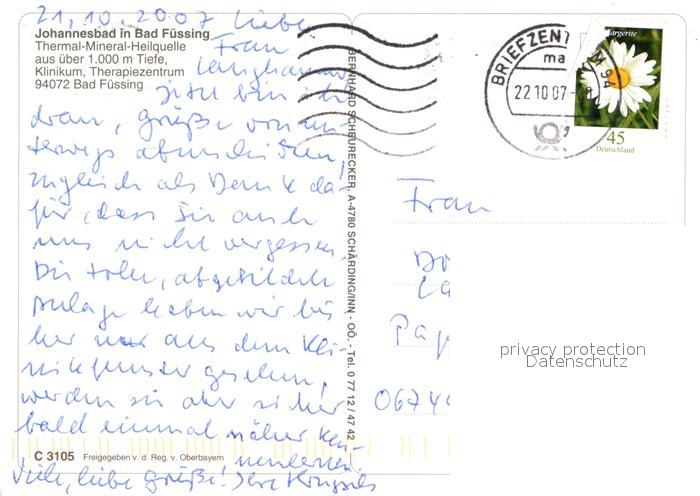 21.10.2007 Liebe
Frau
Langhammer
Johannesbad in Bad Füssing
Thermal-Mineral-Heilquelle
aus über 1.000 m Tiefe,
Klinikum, Therapiezentrum
94072 Bad Füssing
jetzt bin ich
dran, Grüße von un-
terwegs abzuschicken!
Zugleich als Dank da-
für, dass Sie auch
uns nicht vergessen.
Die tolle, abgebildete
Anlage haben wir bis
her nur aus dem Kli-
nikfenster gesehen,
werden sie aber sicher
bald einmal näher ken-
nenlernen.
Viele, liebe Grüße! Ihre
C 3105 Freigegeben v. d. Reg. v. Oberbayern
BERNHARD SCHEURECKER, A-4780 SCHÄRDING/INN - OÖ. - Tel. 0 77 12 / 47 42
BRIEFZENT
ma
94
22.10.07
Margerite
45
Deutschland
Frau
Do
La
Pap
0674
privacy protection
Datenschutz